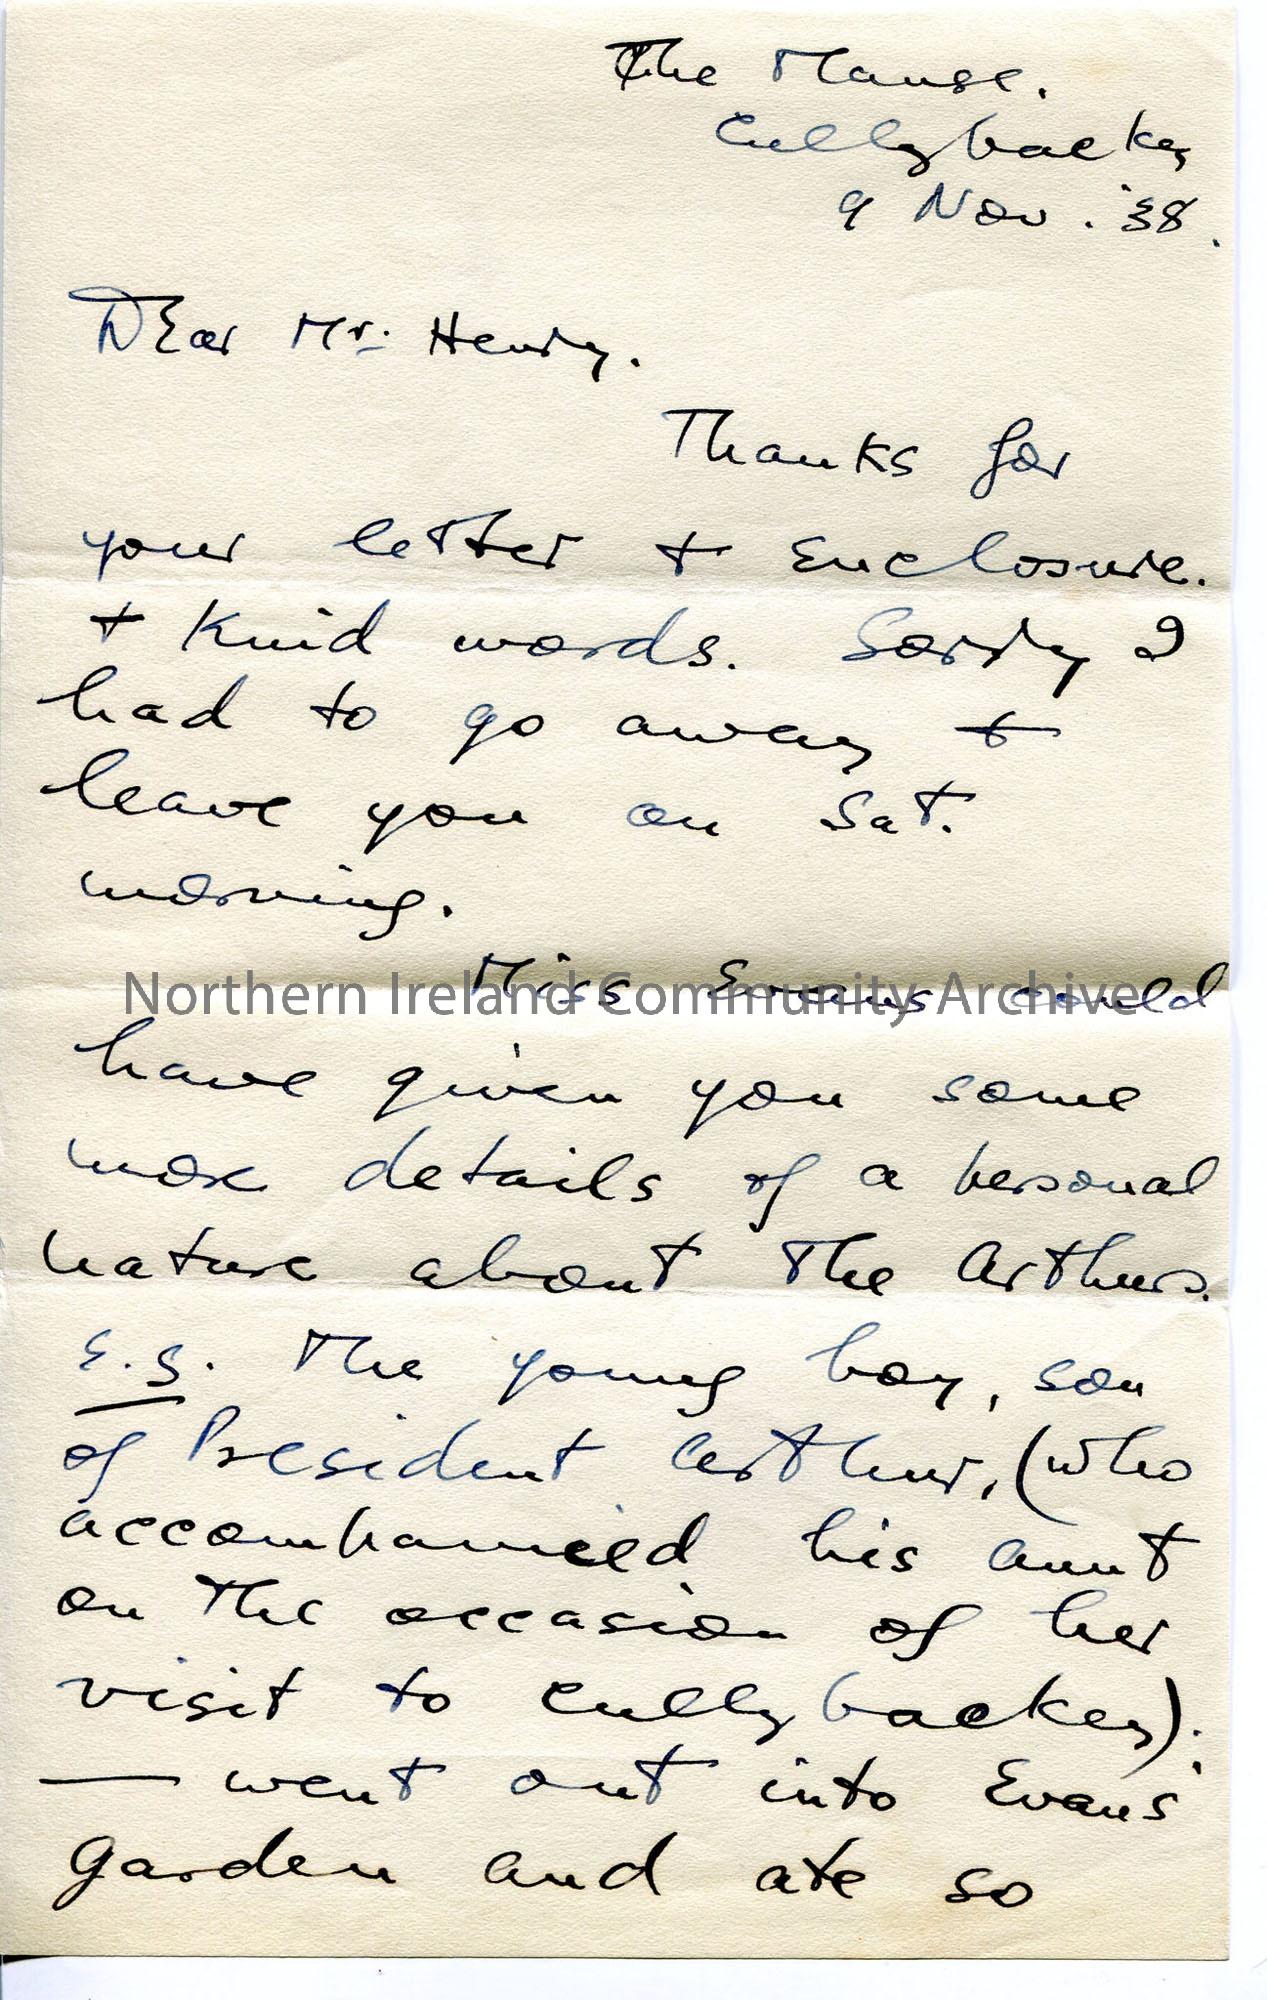 The Manse.
Cullybackey
9 Nov. '38.
Dear Mr. Henry.
Thanks for
your letter + Enclosure.
+ Kind words. Sorry I
had to go away +
leave you on Sat.
morning.
Miss Evans could
Northern Ireland Community Archive
have given you some
more details of a personal
nature about the Arthurs.
e.g. the young boy, son
of President Arthur, (who
accompanied his aunt
on the occasion of her
visit to Cullybackey).
— went out into Evans'
garden and ate so